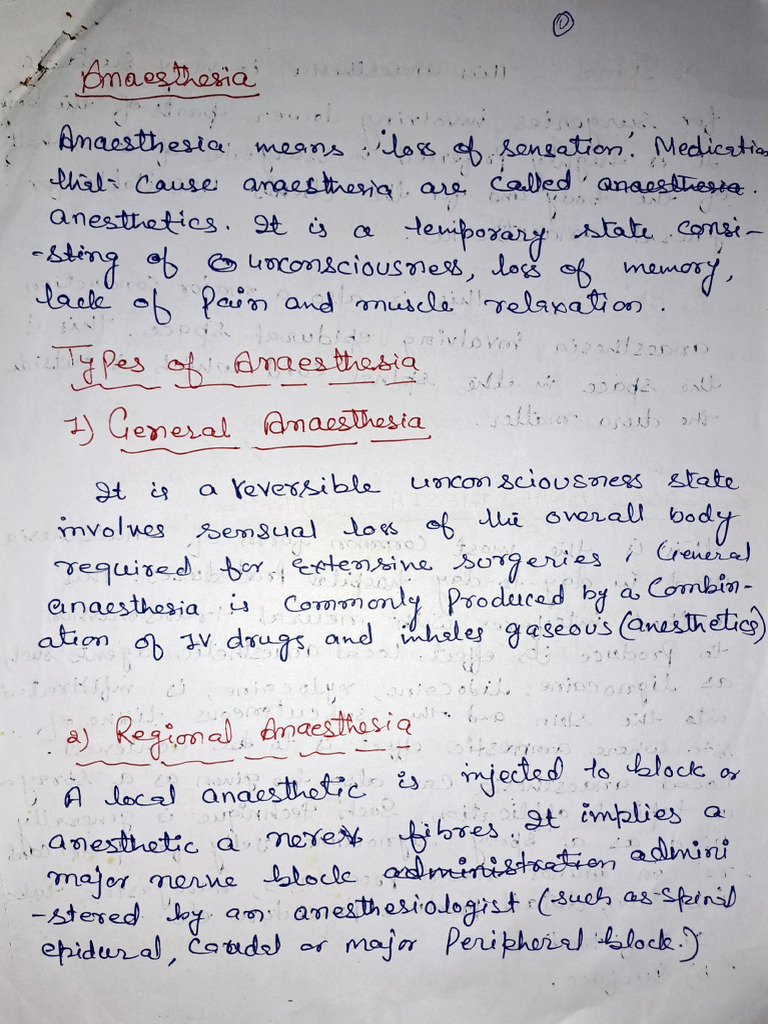 ①
Anaesthesia
Anaesthesia means 'loss of sensation'. Medication
that cause anaesthesia are called anaesthesia.
anesthetics. It is a temporary state consi-
-sting of unconsciousness, loss of memory,
lack of Pain and muscle relaxation.
Types of Anaesthesia
1) General Anaesthesia
It is a reversible unconsciousness state
involves sensual loss of the overall body
required for extensine surgeries, General
anaesthesia is commonly produced by a Combin-
ation of IV drugs and inheles gaseous (anesthetics)
2) Regional Anaesthesia
A local anaesthetic is injected to block or
anesthetic a nerex fibres. It implies a
major nerve block administration admini
-stered by an anesthesiologist (such as spinal
epidural, Caudal or major Peripheral block.)